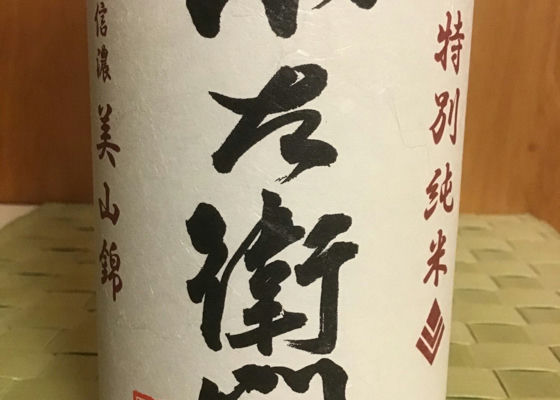 特別純米
左衛門
信濃美山錦